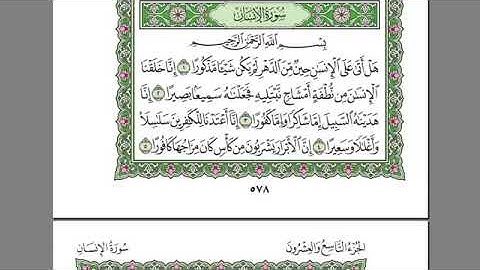 سُورَةُ الإِنسَانِ
بِسْمِ اللَّهِ الرَّحْمَٰنِ الرَّحِيمِ
هَلْ أَتَىٰ عَلَى الْإِنسَٰنِ حِينٌ مِّنَ الدَّهْرِ لَمْ يَكُن شَيْـًٔا مَّذْكُورًا ١ إِنَّا خَلَقْنَا
الْإِنسَٰنَ مِن نُّطْفَةٍ أَمْشَاجٍ نَّبْتَلِيهِ فَجَعَلْنَٰهُ سَمِيعًۢا بَصِيرًا ٢ إِنَّا
هَدَيْنَٰهُ السَّبِيلَ إِمَّا شَاكِرًا وَإِمَّا كَفُورًا ٣ إِنَّآ أَعْتَدْنَا لِلْكَٰفِرِينَ سَلَٰسِلَا۟
وَأَغْلَٰلًا وَسَعِيرًا ٤ إِنَّ الْأَبْرَارَ يَشْرَبُونَ مِن كَأْسٍ كَانَ مِزَاجُهَا كَافُورًا ٥
٥٧٨
الجُزْءُ التَّاسِعُ وَالعِشْرُونَ سُورَةُ الإِنسَانِ